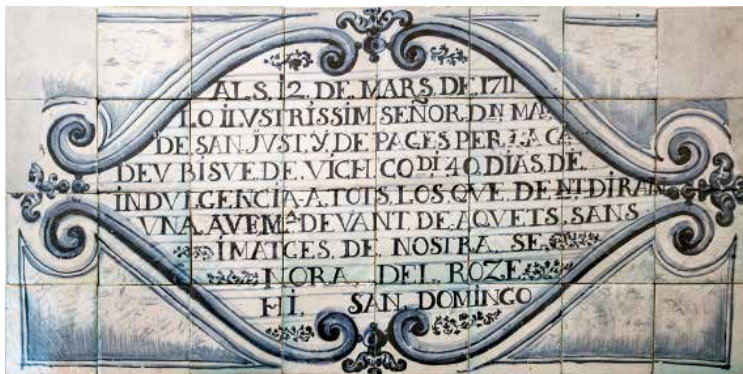 ALS. 12. DE. MARS. DE. 1711
LO ILVSTRÍSSIM. SEÑOR. DN MA.
DE. SAN. JVST. Y. DE. PAGES PER. LA. GA.
DEV BISVE. DE. VICH. CO DI. 40. DIAS. DE.
INDVLGENCIA. A. TOTS. LOS. QVE. DE NT. DIRAN
VNA. AVEM.A DEVANT. DE. AQVETS. SANS
IMATGES. DE. NOSTRA. SE.
NORA. DEL. ROZE
HI. SAN. DOMINGO